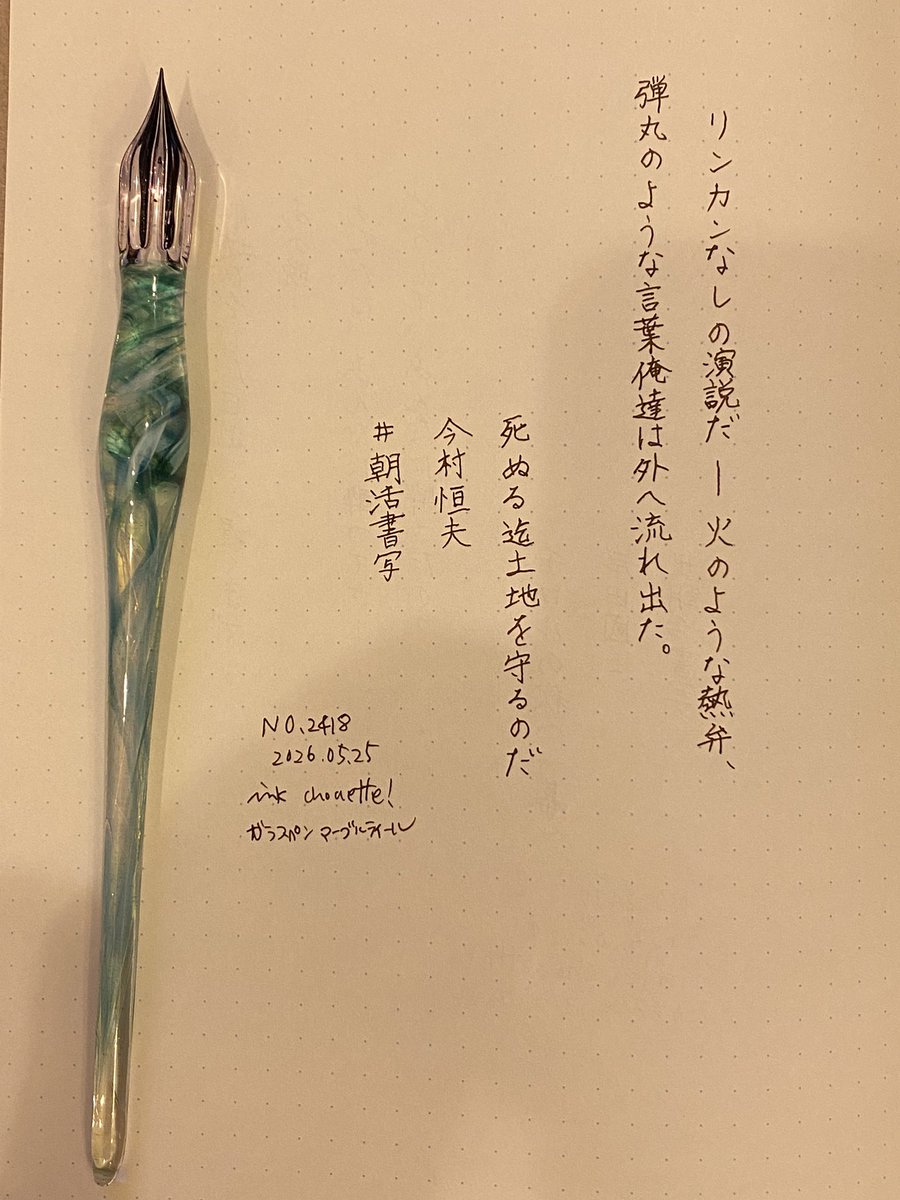 リンカンなしの演説だー 火のような熱弁、
弾丸のような言葉俺達は外へ流れ出た。
死ぬる迄土地を守るのだ
今村恒夫
#朝活書写
NO.2418
2026.05.25
ink chouette!
ガラスペン マーブルティール